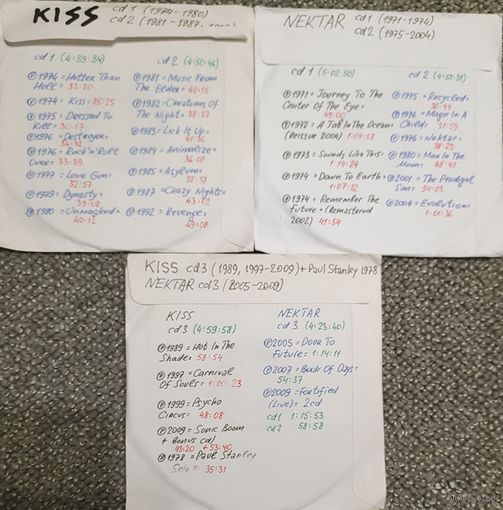 KISS cd 1 (1974-1980)
cd 2 (1981-1987,
cd 1 (4:59:34)
℗ 1974 = Hotter Than
Hell = 33:20
℗ 1974 = Kiss = 35:25
℗ 1975 = Dressed To
Kill = 30:17
℗ 1976 = Destroyer=
34:32
℗ 1976 = Rock'n'Roll
Over = 33:39
℗ 1977 = Love Gun=
32:57
℗ 1979 = Dynasty=
39:02
℗ 1980 = Unmasked=
40:12
cd 2 (4:50:46)
℗ 1981 = Music From
The Elder = 42:55
℗ 1982 = Creatures Of
The Night = 38:57
℗ 1983 = Lick It Up=
41:36
℗ 1984 = Animalize=
36:02
℗ 1985 = Asylum=
38:51
℗ 1987 = Crazy Nights=
43:12
℗ 1992 = Revenge=
49:08
NEKTAR cd 1 (1971-1974)
cd 2 (1975-2004)
cd 1 (5:02:50)
℗ 1971 = Journey To The
Center Of The Eye=
49:00
℗ 1972 = A Tab In The Ocean
(Reissue 2004) 1:09:58
℗ 1973 = Sounds Like This:
1:14:24
℗ 1974 = Down To Earth=
1:07:12
℗ 1974 = Remember The
Future = (Remastered
2002) 41:54
cd 2 (4:51:31)
℗ 1975 = Recycled=
℗ 1976 = Magic In A
Child= 51:59
℗ 1976 = Nektar=
38:25
℗ 1980 = Man In The
Moon= 48:41
℗ 2001 = The Prodigal
Son= 54:03
℗ 2004 = Evolution=
1:01:36
KISS cd 3 (1989, 1997-2009) + Paul Stanley 1978
NEKTAR cd 3 (2005-2009)
KISS
cd 3 (4:59:58)
℗ 1989 = Hot In The
Shade= 58:54
℗ 1997 = Carnival
Of Souls = 1:00:23
℗ 1999 = Psycho
Circus: 48:08
℗ 2009 = Sonic Boom
+ Bonus cd)
43:20 + 53:40
℗ 1978 = Paul Stanley
Solo = 35:31
NEKTAR
cd 3 (4:23:40)
℗ 2005 = Door To
Future = 1:14:11
℗ 2007 = Book Of Days=
54:37
℗ 2009 = Fortified
(Live) = 2cd
cd1 1:15:53
cd2 58:58